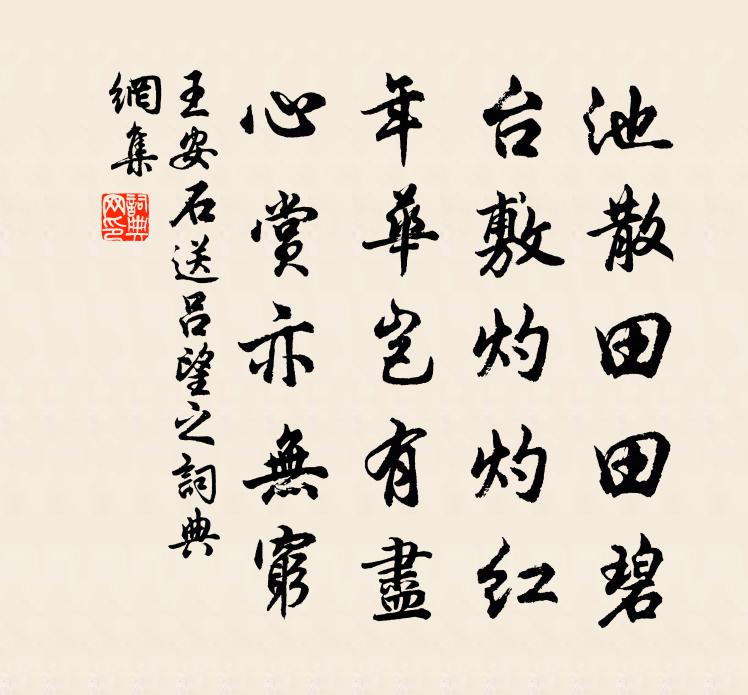 池散田田碧
台敷灼灼红
年華岂有盡
心赏亦無窮
王安石送吕望之詞典
網集
詞典
网印